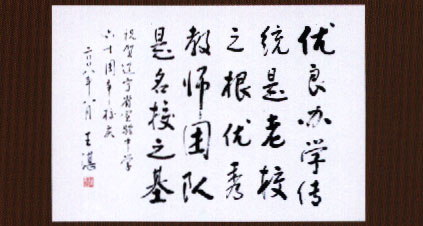 优良办学传
统是老校
之根优秀
教师团队
是名校之基
祝贺辽宁省实验中学
六十周年校庆
二〇〇八年八月 王湛